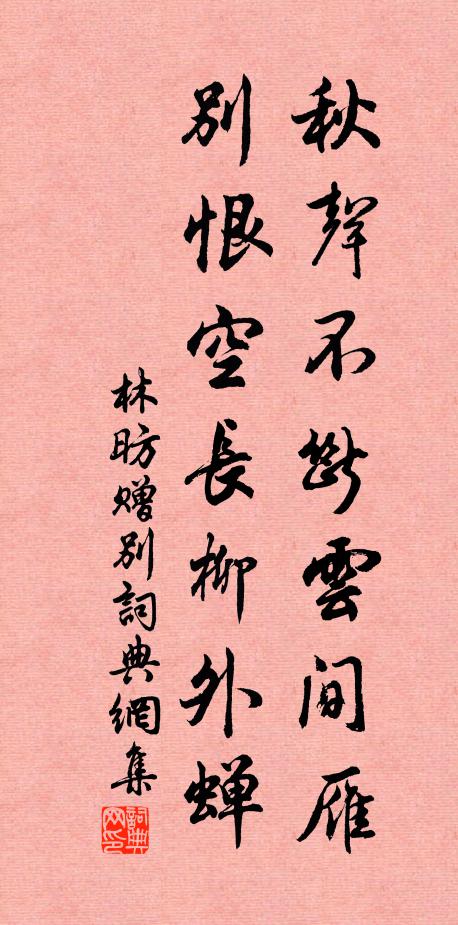 秋聲不斷雲間雁
別恨空長柳外蟬
林昉贈別詞典網集
詞典网印